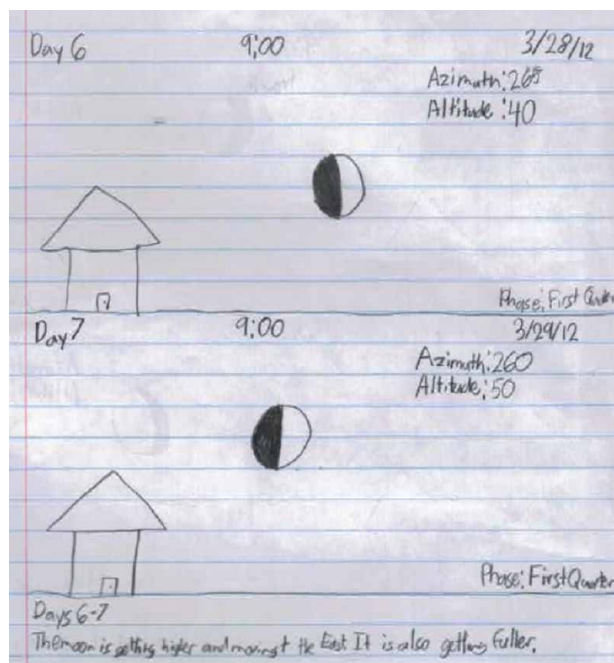 Day 6 9:00 3/28/12
Azimuth: 268
Altitude: 40
Phase: First Quarter
Day 7 9:00 3/29/12
Azimuth: 260
Altitude; 50
Phase: First Quarter
Days 6-7
The moon is getting higher and moving t the East It is also getting Fuller.